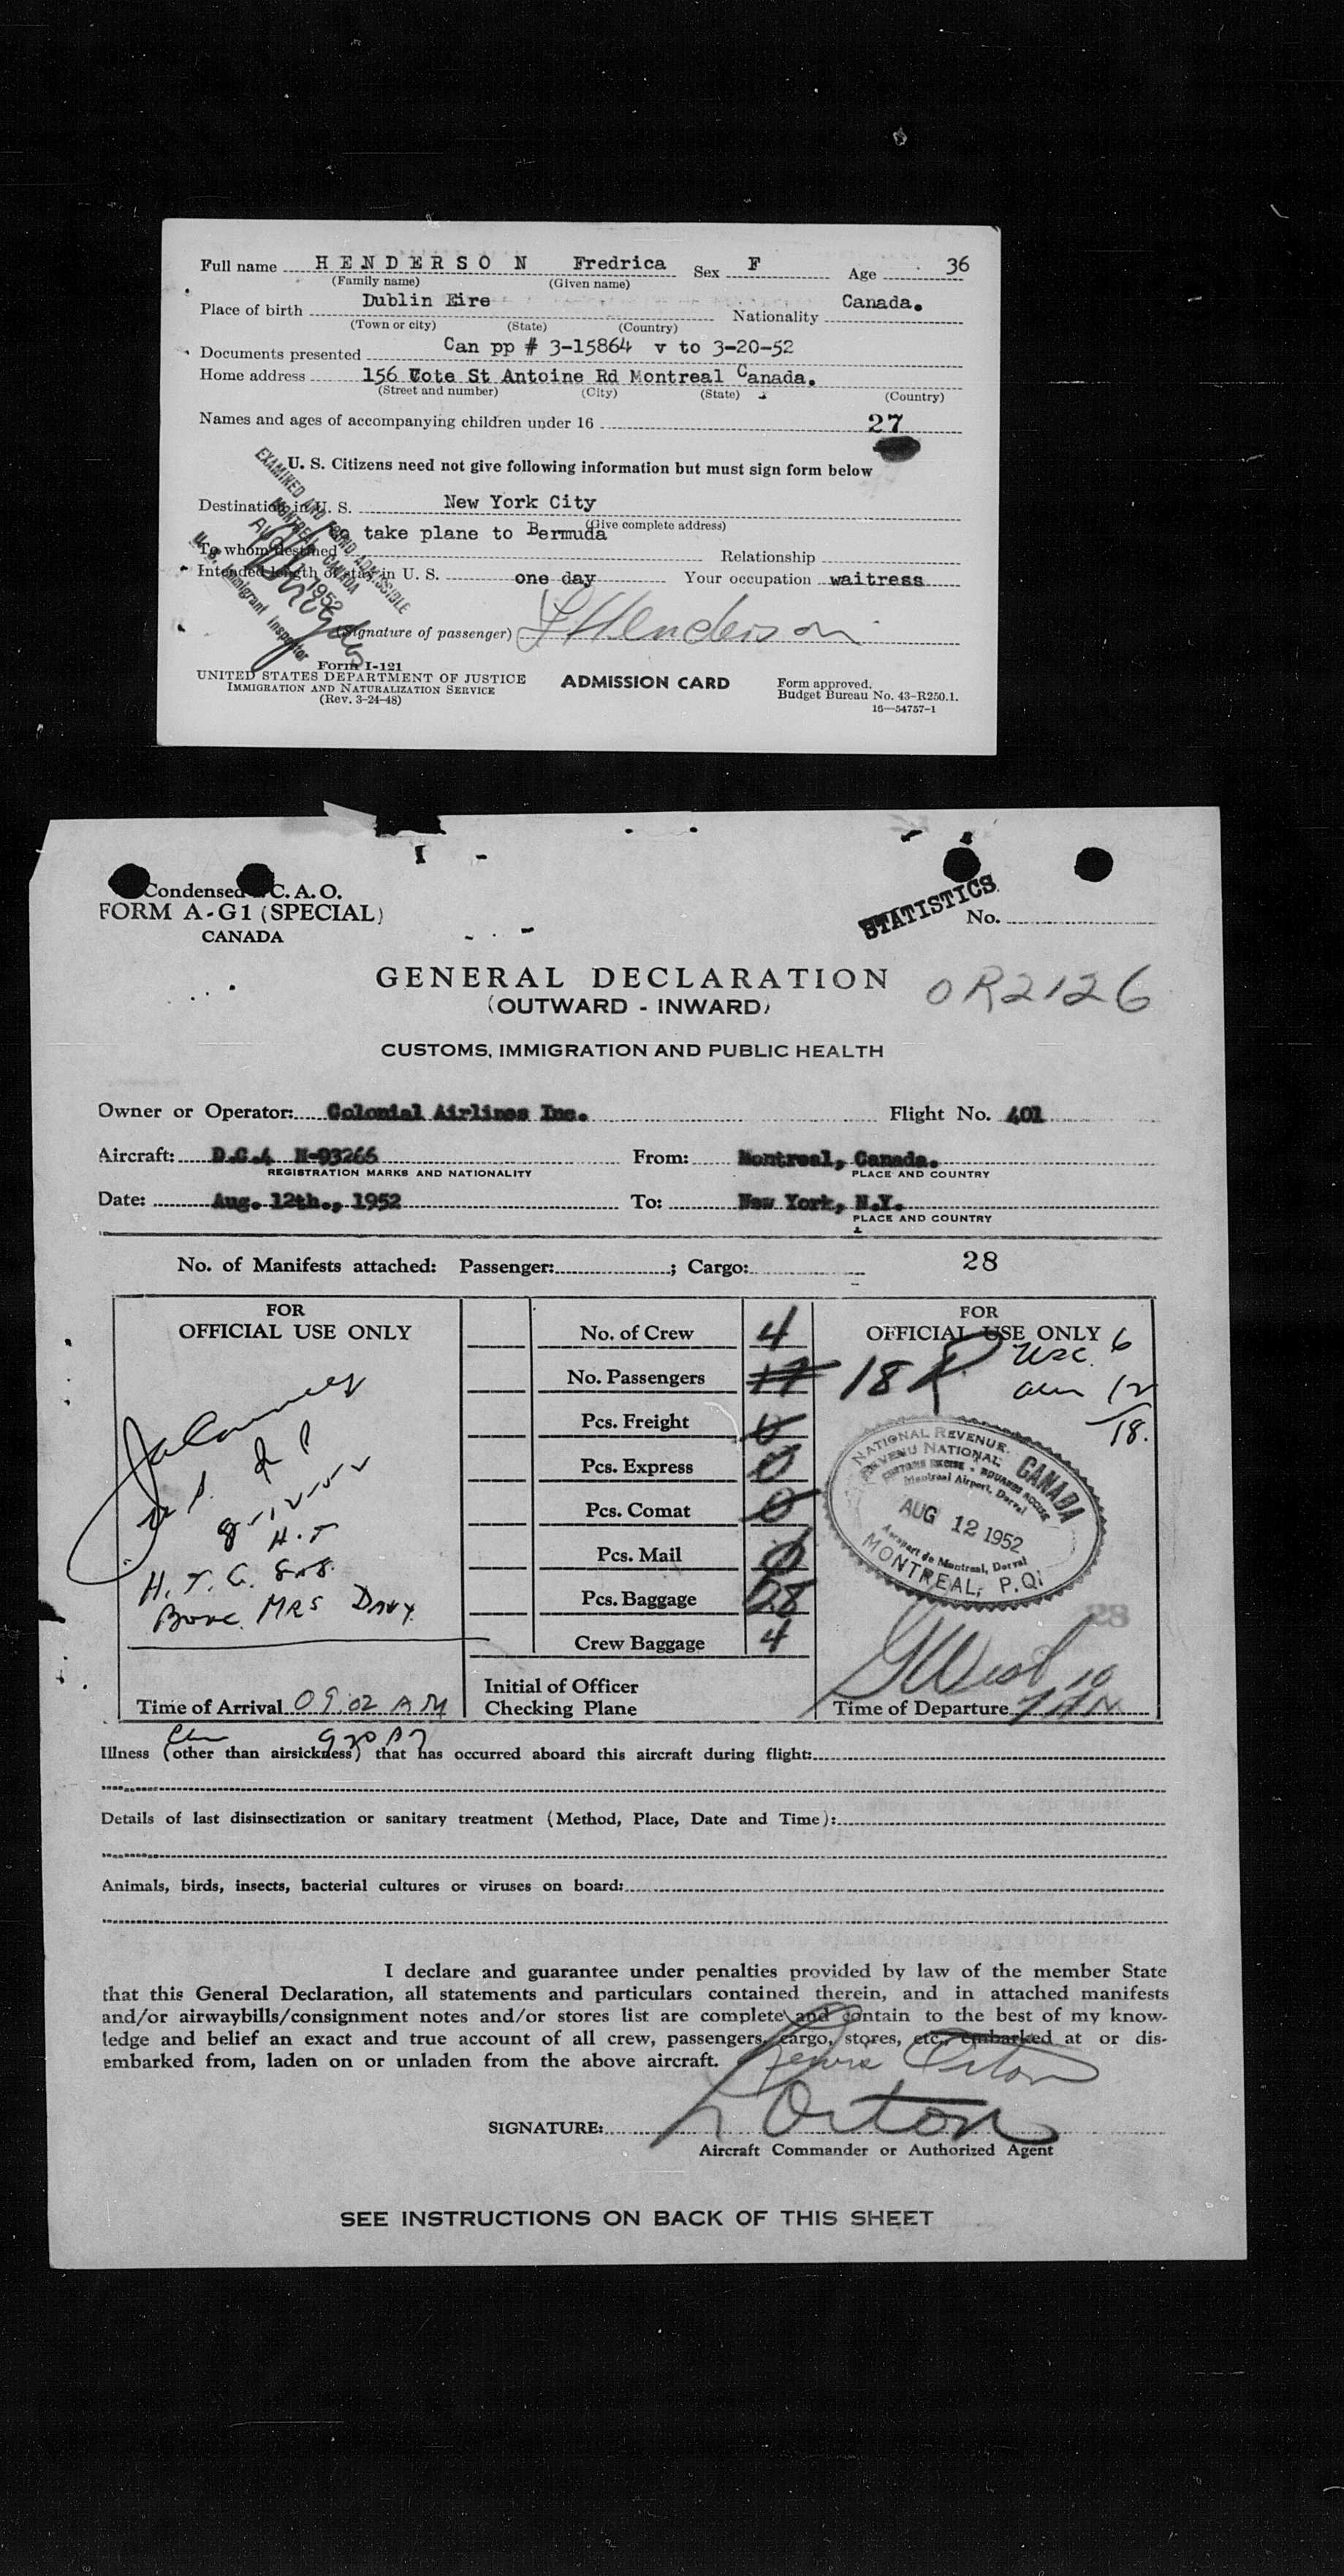 Full name HENDERSON Fredrica Sex F Age 36
(Family name) (Given name)
Place of birth Dublin Eire Nationality Canada.
(Town or city) (State) (Country)
Documents presented Can pp # 3-15864 v to 3-20-52
Home address 156 Cote St Antoine Rd Montreal Canada.
(Street and number) (City) (State) (Country)
Names and ages of accompanying children under 16 27
U. S. Citizens need not give following information but must sign form below
Destination in U. S. New York City
(Give complete address)
to take plane to Bermuda
To whom destined Relationship
Intended length of stay in U. S. one day Your occupation waitress
EXAMINED AND FOUND ADMISSIBLE
MONTREAL CANADA
1952
U. S. Immigrant Inspector
(Signature of passenger) F Henderson
Form I-121
UNITED STATES DEPARTMENT OF JUSTICE
IMMIGRATION AND NATURALIZATION SERVICE
(Rev. 3-24-48)
ADMISSION CARD
Form approved.
Budget Bureau No. 43-R250.1.
16—54757-1
Condensed C. A. O.
FORM A-G1 (SPECIAL)
CANADA
STATISTICS
No.
GENERAL DECLARATION
(OUTWARD - INWARD)
OR2126
CUSTOMS, IMMIGRATION AND PUBLIC HEALTH
Owner or Operator: Colonial Airlines Inc. Flight No. 401
Aircraft: D.C.4 N-93266 From: Montreal, Canada.
REGISTRATION MARKS AND NATIONALITY PLACE AND COUNTRY
Date: Aug. 12th., 1952 To: New York, N.Y.
PLACE AND COUNTRY
No. of Manifests attached: Passenger: ; Cargo: 28
FOR
OFFICIAL USE ONLY
No. of Crew 4
No. Passengers 17
Pcs. Freight 0
Pcs. Express 0
Pcs. Comat 0
Pcs. Mail 0
Pcs. Baggage 28
Crew Baggage 4
Initial of Officer
Checking Plane
FOR
OFFICIAL USE ONLY
18 USC. 6
12
18.
NATIONAL REVENUE
REVENU NATIONAL
CANADA
CUSTOMS EXCISE - DOUANES ACCISE
Montreal Airport, Dorval
AUG 12 1952
Aeroport de Montreal, Dorval
MONTREAL, P.Q.
28
8-12-52
H.T
H. T. G.
MRS DAVY
Time of Arrival 09.02 AM
Time of Departure
Illness (other than airsickness) that has occurred aboard this aircraft during flight:
Details of last disinsectization or sanitary treatment (Method, Place, Date and Time):
Animals, birds, insects, bacterial cultures or viruses on board:
I declare and guarantee under penalties provided by law of the member State
that this General Declaration, all statements and particulars contained therein, and in attached manifests
and/or airwaybills/consignment notes and/or stores list are complete and contain to the best of my know-
ledge and belief an exact and true account of all crew, passengers, cargo, stores, etc., embarked at or dis-
embarked from, laden on or unladen from the above aircraft.
SIGNATURE: L Orton
Aircraft Commander or Authorized Agent
SEE INSTRUCTIONS ON BACK OF THIS SHEET